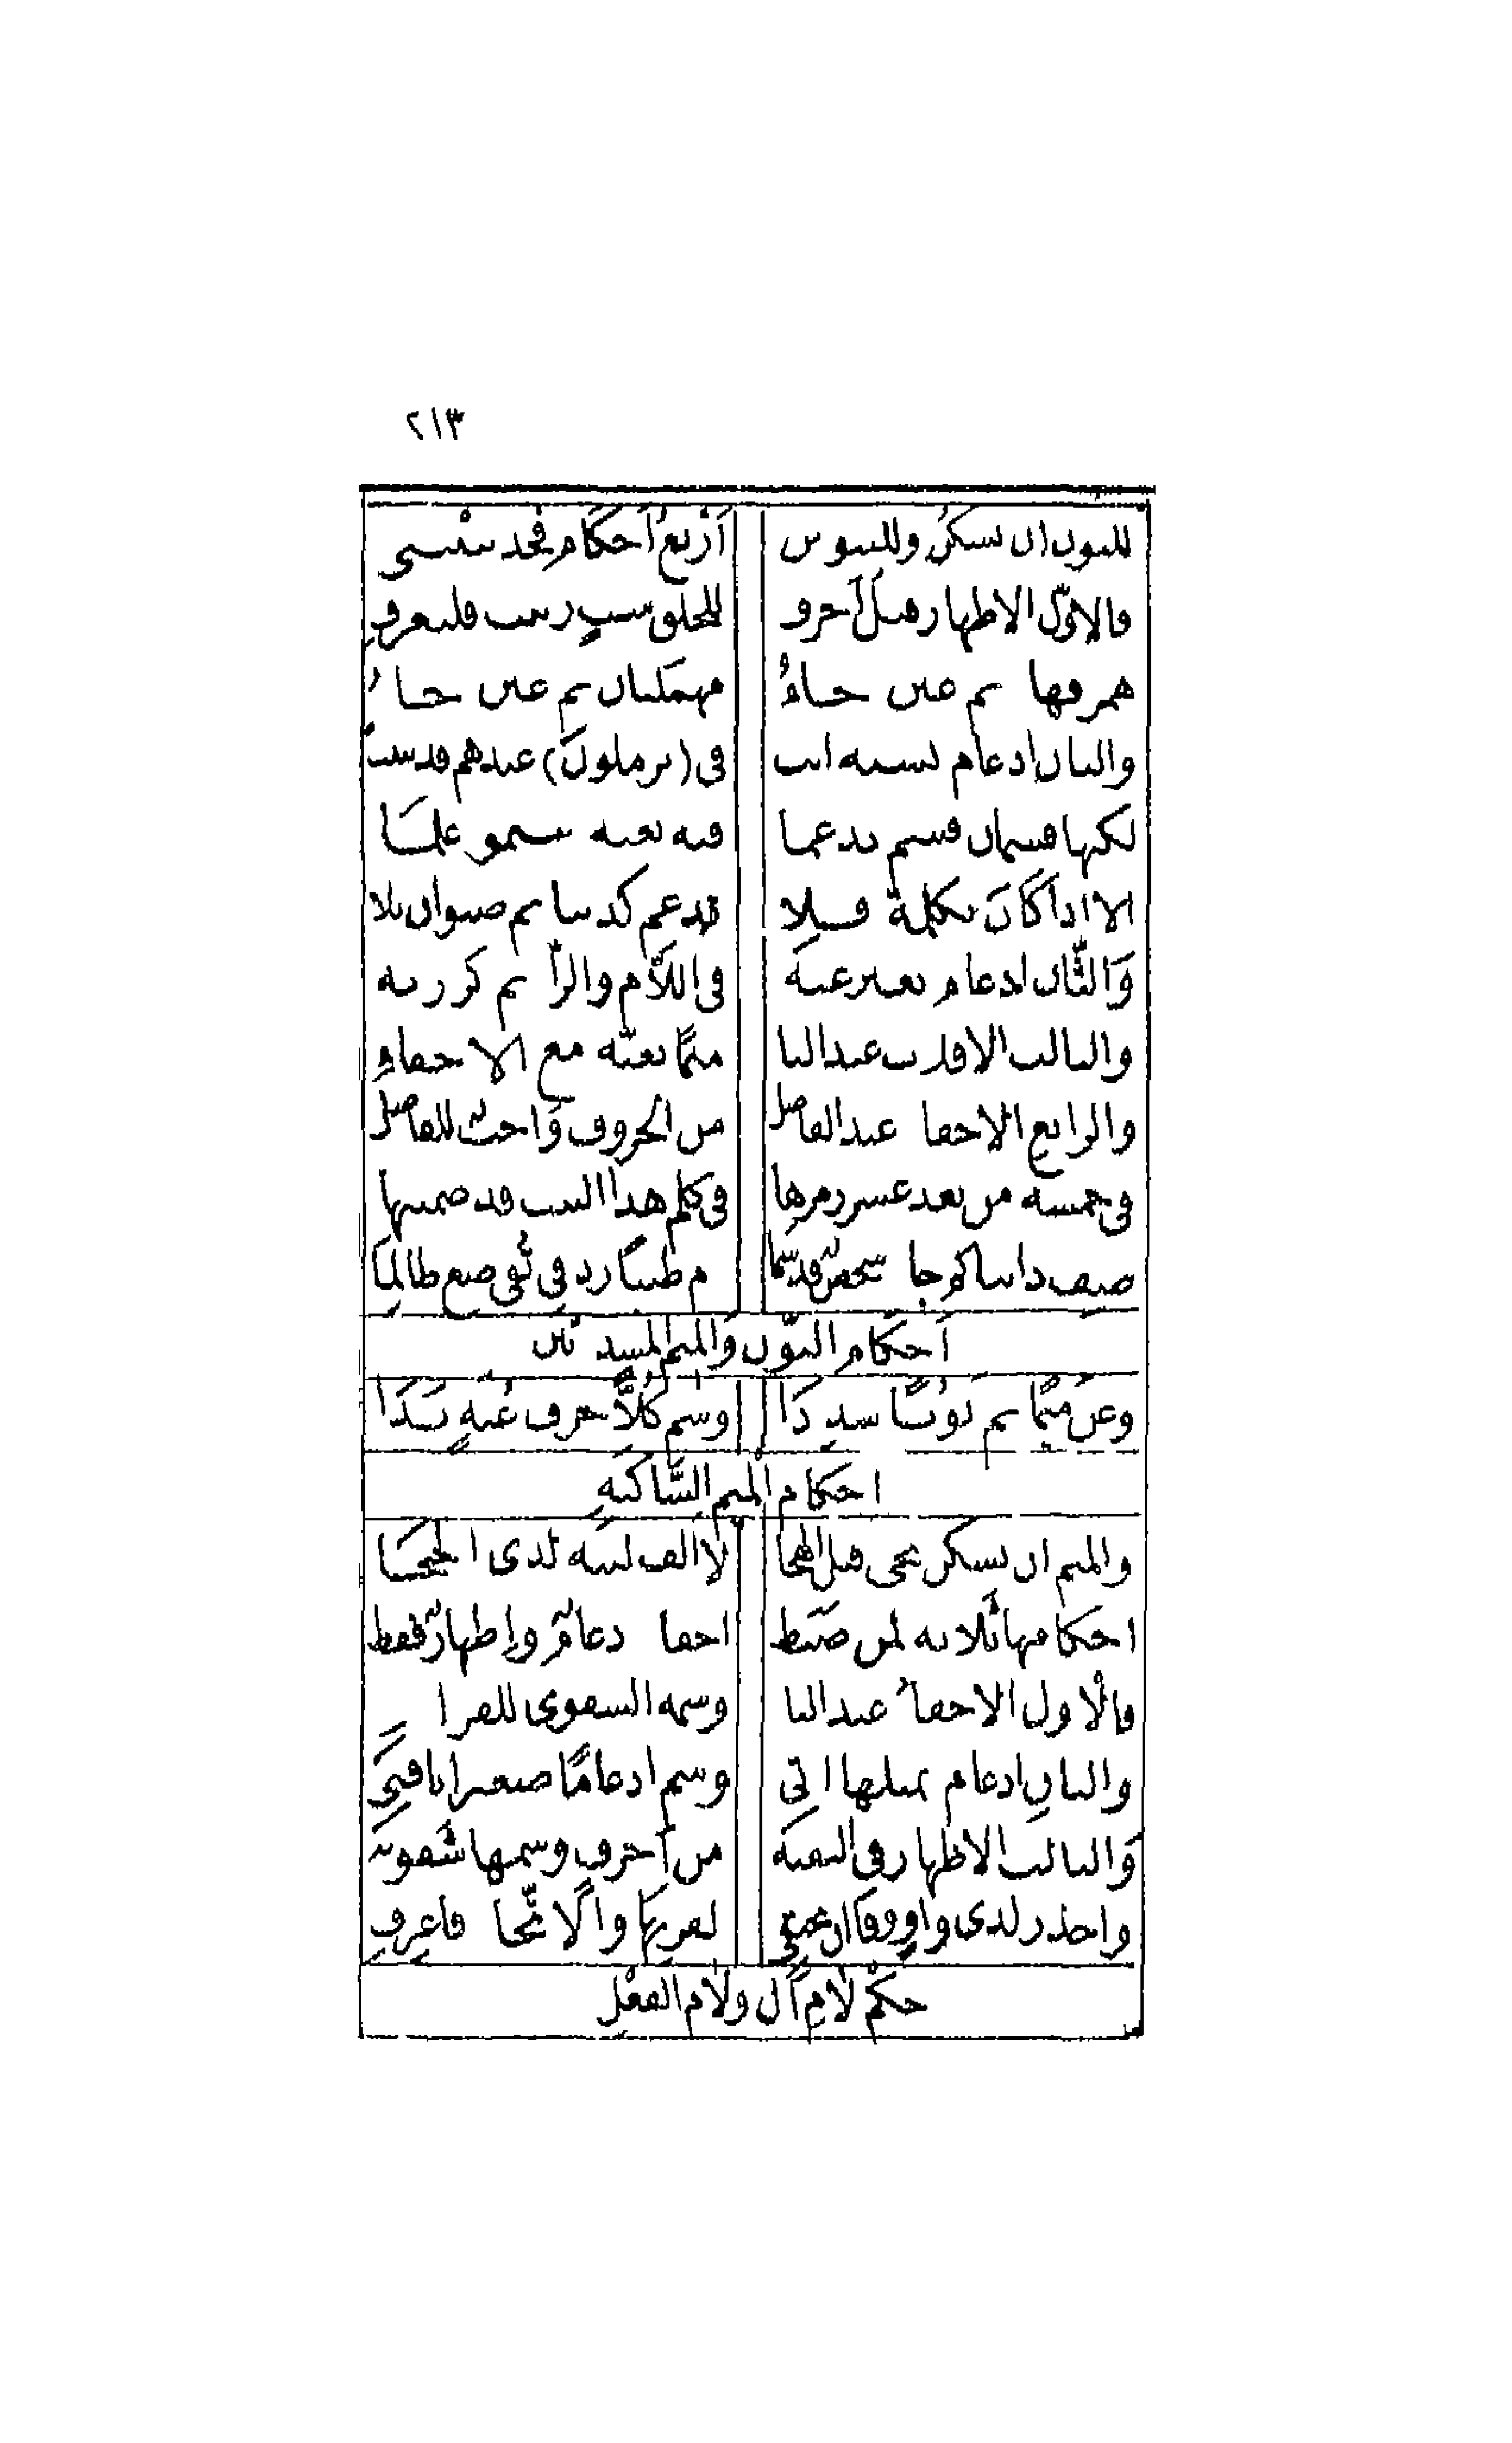 ٢١٣
للنون ان تسكن وللتنوين أربع أحكام فخذ تبييني
فالاوّل الاظهار قبل أحرف للحلق ست رتبت فلتعرف
همز فهاء ثم عين حاءُ مهملتان ثم غين خاءُ
والثان ادغام بستة اتت فى (يرملون) عندهم قد ثبتت
لكنها قسمان قسم يدغما فيه بغنة بينمو علما
الا اذا كانَ بكلمة فلا تدغم كدنيا ثم صنوان تلا
وَالثّان ادغام بغير غنة فى اللاّم والرّا ثم كررنه
والثالث الاقلاب عند الباء ميمًا بغنّة مع الاخفاءِ
والرابع الاخفاء عند الفاضل من الحروف وَاجبٌ للفاضل
فى خمسة من بعد عشر رمزها فى كلم هذا البيت قد ضمنتها
صف ذا ثنا كم جاد شخصٌ قد سما دم طيبًا زد فى تُقى ضع ظالما
أحكام النّون وَالميم المشددتين
وغن ميمًا ثم نونًا شددَا وسم كلاًّ حرف غنةٍ بَدَا
احكام الميم السَّاكنةِ
والميم ان تسكن تجى قبل الهجا لا الف لينة لدى الحجَا
احكامها ثلاثة لمن ضبط اخفاء ادغامٌ وإظهارٌ فقط
فالأول الاخفاءُ عند الباء وسمه الشفوى للقراء
والثانِ ادغام بمثلها اتى وسم ادغامًا صغيرا يا فتَى
وَالثالث الاظهار فى البقية من أحرف وسمها شفوية
واحذر لدى واو وفا ان تختفى لقربها وَالاتّحاد فاعرفِ
حكم لَام أل ولَام الفعل